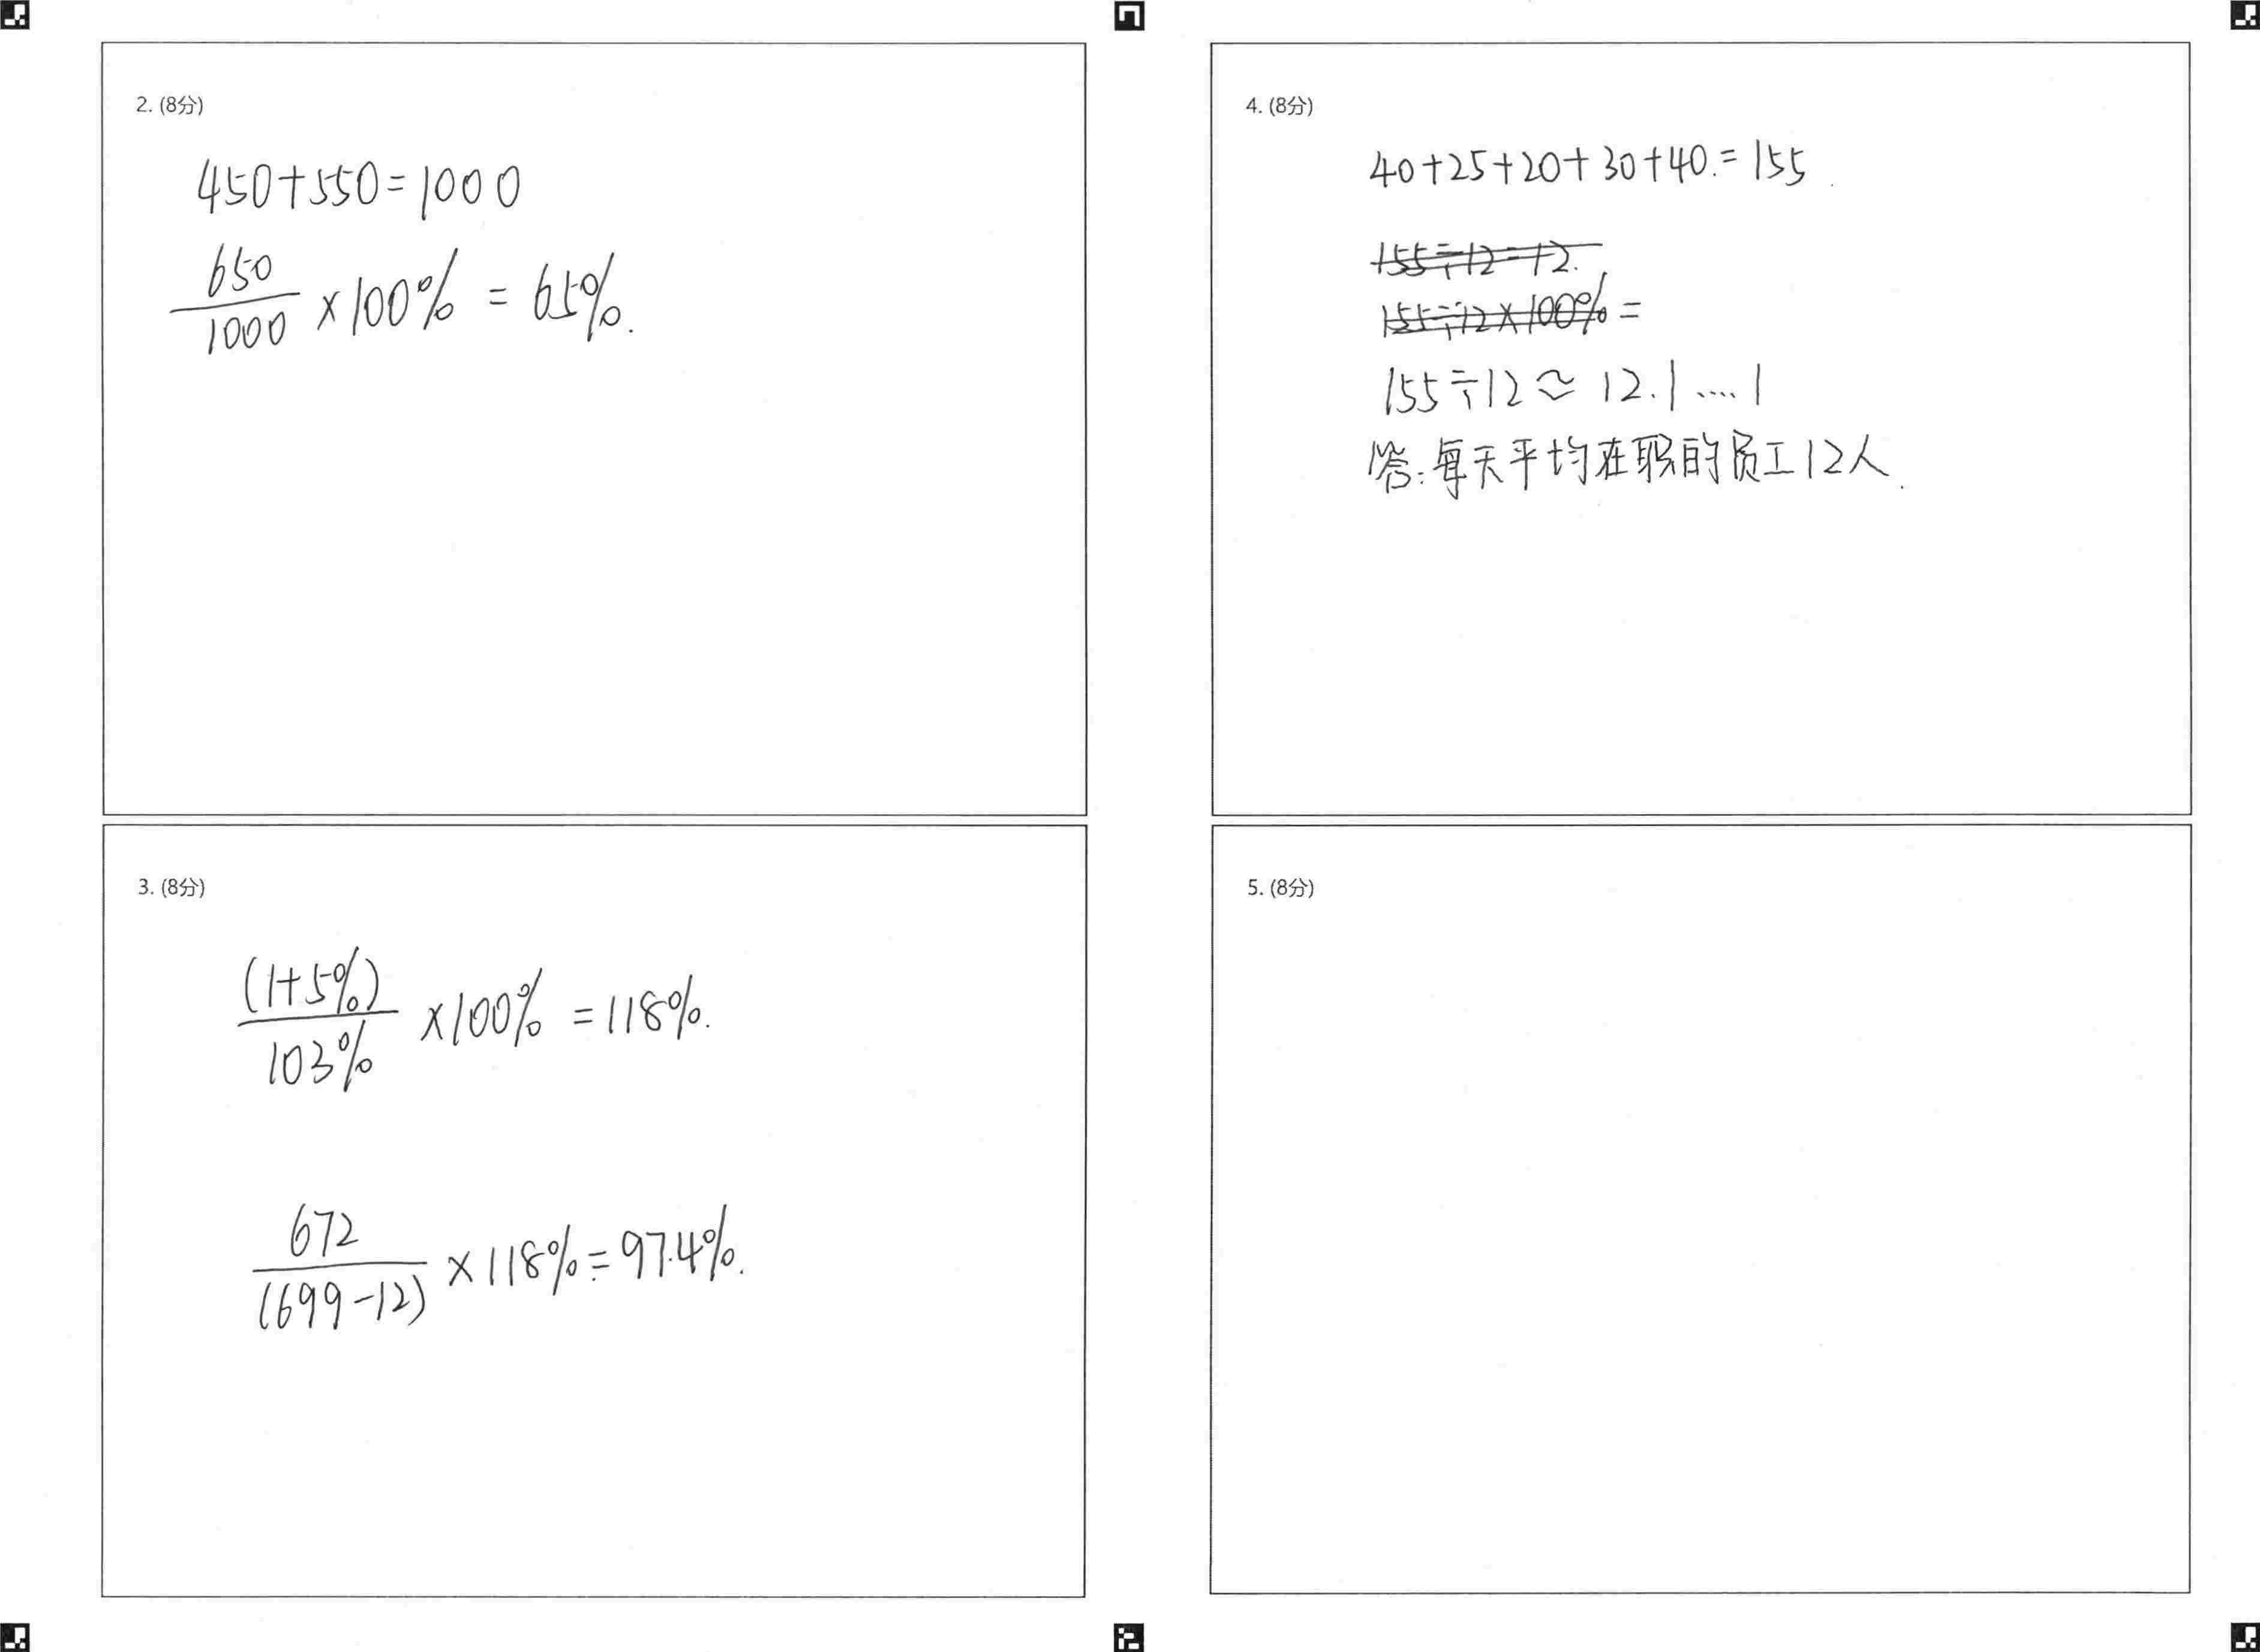 2. (8分)
450+550=1000
650/1000 ×100% = 65%.
3. (8分)
(1+5%)/103% ×100% =118%.
672/(699-12) ×118%=97.4%.
4. (8分)
40+25+20+30+40.=155.
155÷12=12.
155÷12×100%=
155÷12≈12.1....1
答:每天平均在职的员工12人.
5. (8分)